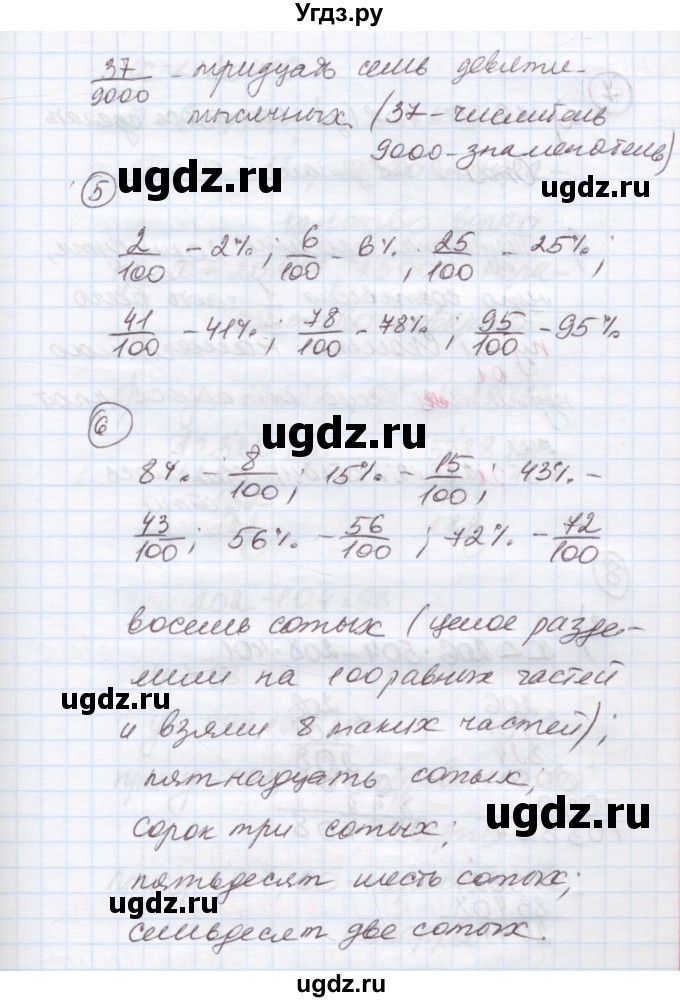 Угдз.ру
37/9000 - тридцать семь девяти-
тысячных (37 - числитель
9000 - знаменатель)
5
ugdz.ru
ugdz.ru
2/100 - 2%; 6/100 - 6%; 25/100 - 25%;
41/100 - 41%; 78/100 - 78%; 95/100 - 95%
6
ugdz.ru
8% - 8/100; 15% - 15/100; 43% -
43/100; 56% - 56/100; 72% - 72/100
восемь сотых (целое разде-
лили на 100 равных частей
ugdz.ru
и взяли 8 таких частей);
пятнадцать сотых;
ugdz.ru
сорок три сотых;
пятьдесят шесть сотых;
ugdz.ru
семьдесят две сотых.
ugdz.ru